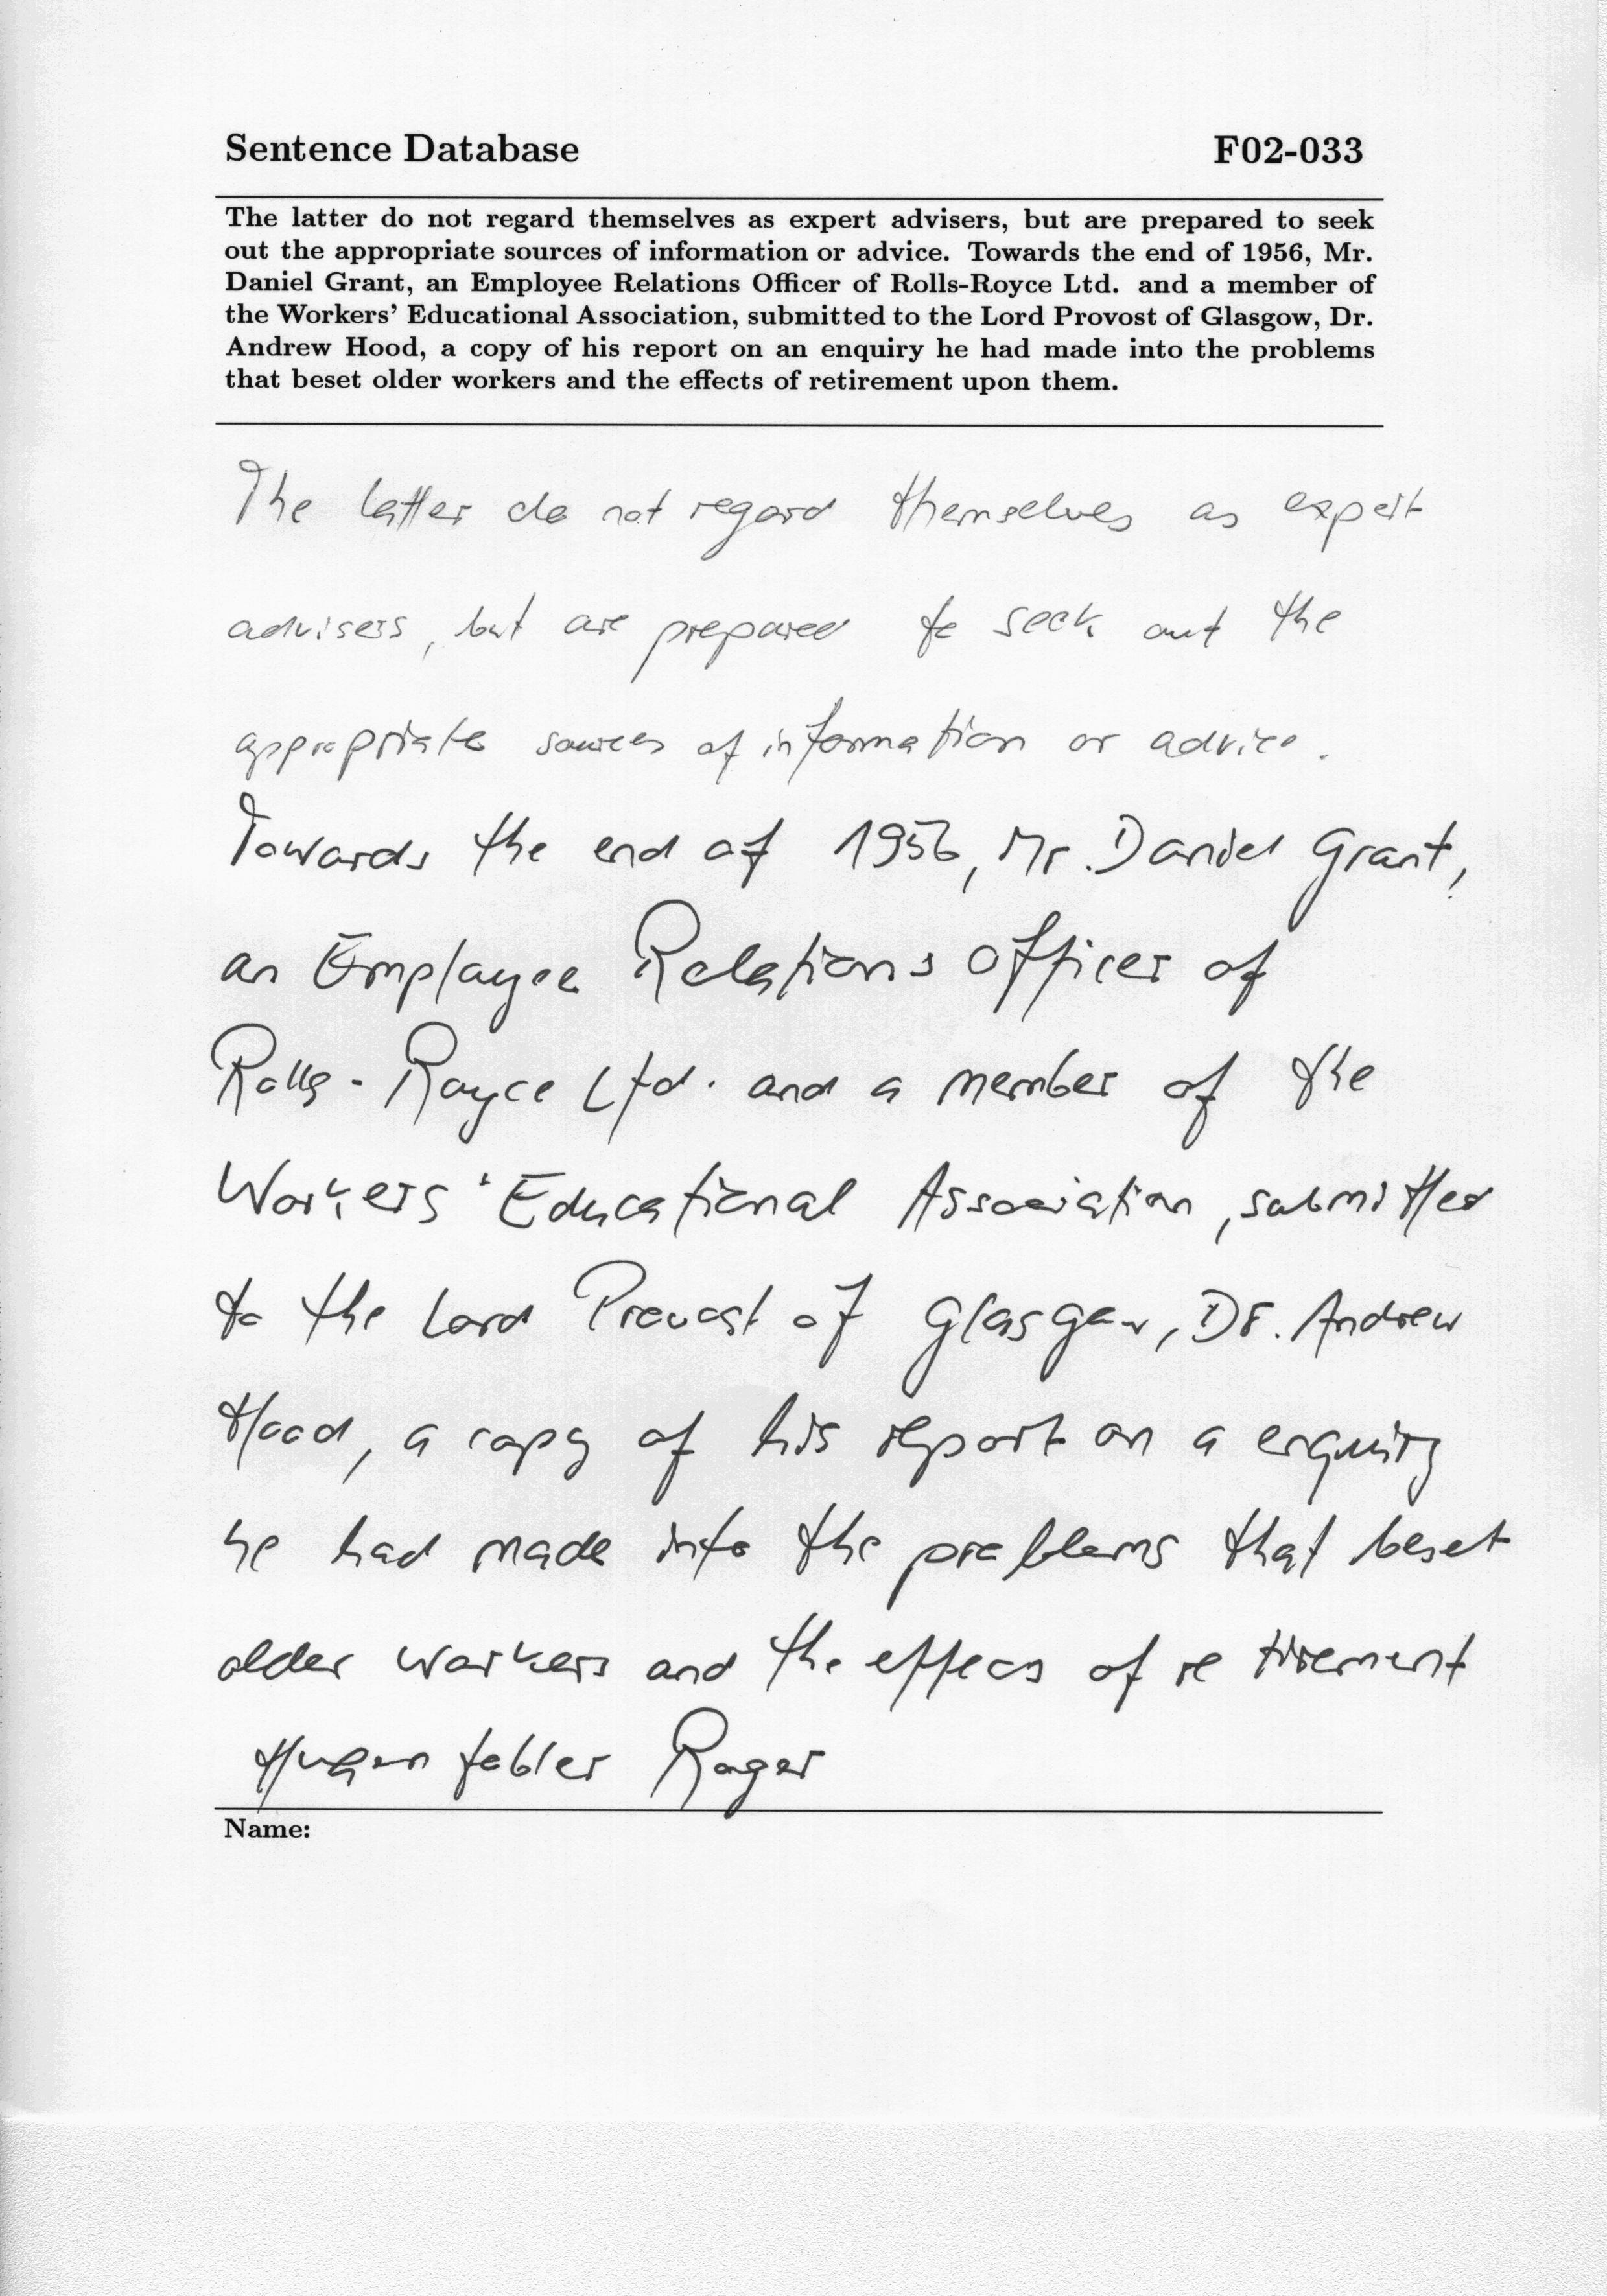 Sentence Database F02-033
The latter do not regard themselves as expert advisers, but are prepared to seek
out the appropriate sources of information or advice. Towards the end of 1956, Mr.
Daniel Grant, an Employee Relations Officer of Rolls-Royce Ltd. and a member of
the Workers' Educational Association, submitted to the Lord Provost of Glasgow, Dr.
Andrew Hood, a copy of his report on an enquiry he had made into the problems
that beset older workers and the effects of retirement upon them.
The latter do not regard themselves as expert
advisers, but are prepared to seek out the
appropriate sources of information or advice.
Towards the end of 1956, Mr. Daniel Grant,
an Employee Relations Officer of
Rolls-Royce Ltd. and a member of the
Workers' Educational Association, submitted
to the Lord Provost of Glasgow, Dr. Andrew
Hood, a copy of his report on a enquiry
he had made into the problems that beset
older workers and the effecs of retirement
Hugentobler Roger
Name: